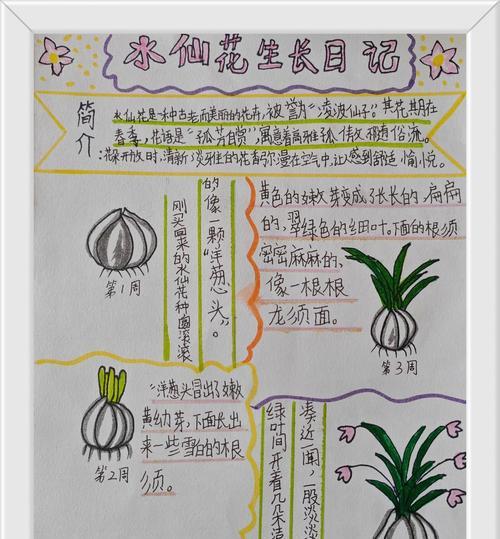 水仙花生长日记
简介
水仙花是一种古老而美丽的花卉,被誉为“凌波仙子”。其花期在
春季,花语是“孤芳自赏”寓意着高雅孤傲不随俗流。
花朵开放时,清新淡雅的花香弥漫在空气中,让人感到舒适愉悦。
刚买回来的水仙花种圆滚滚
的像一颗“洋葱头”。
第1周
“洋葱头冒出了嫩
黄幼芽,下面长出
来一些雪白的根
须。
第2周
黄色的嫩芽变成了长长的,扁扁
的,翠绿色的细叶。下面的根须
密密麻麻的,
像一根根
龙须面。
第3周
绿叶间开着几朵
凑近一闻,一股淡淡